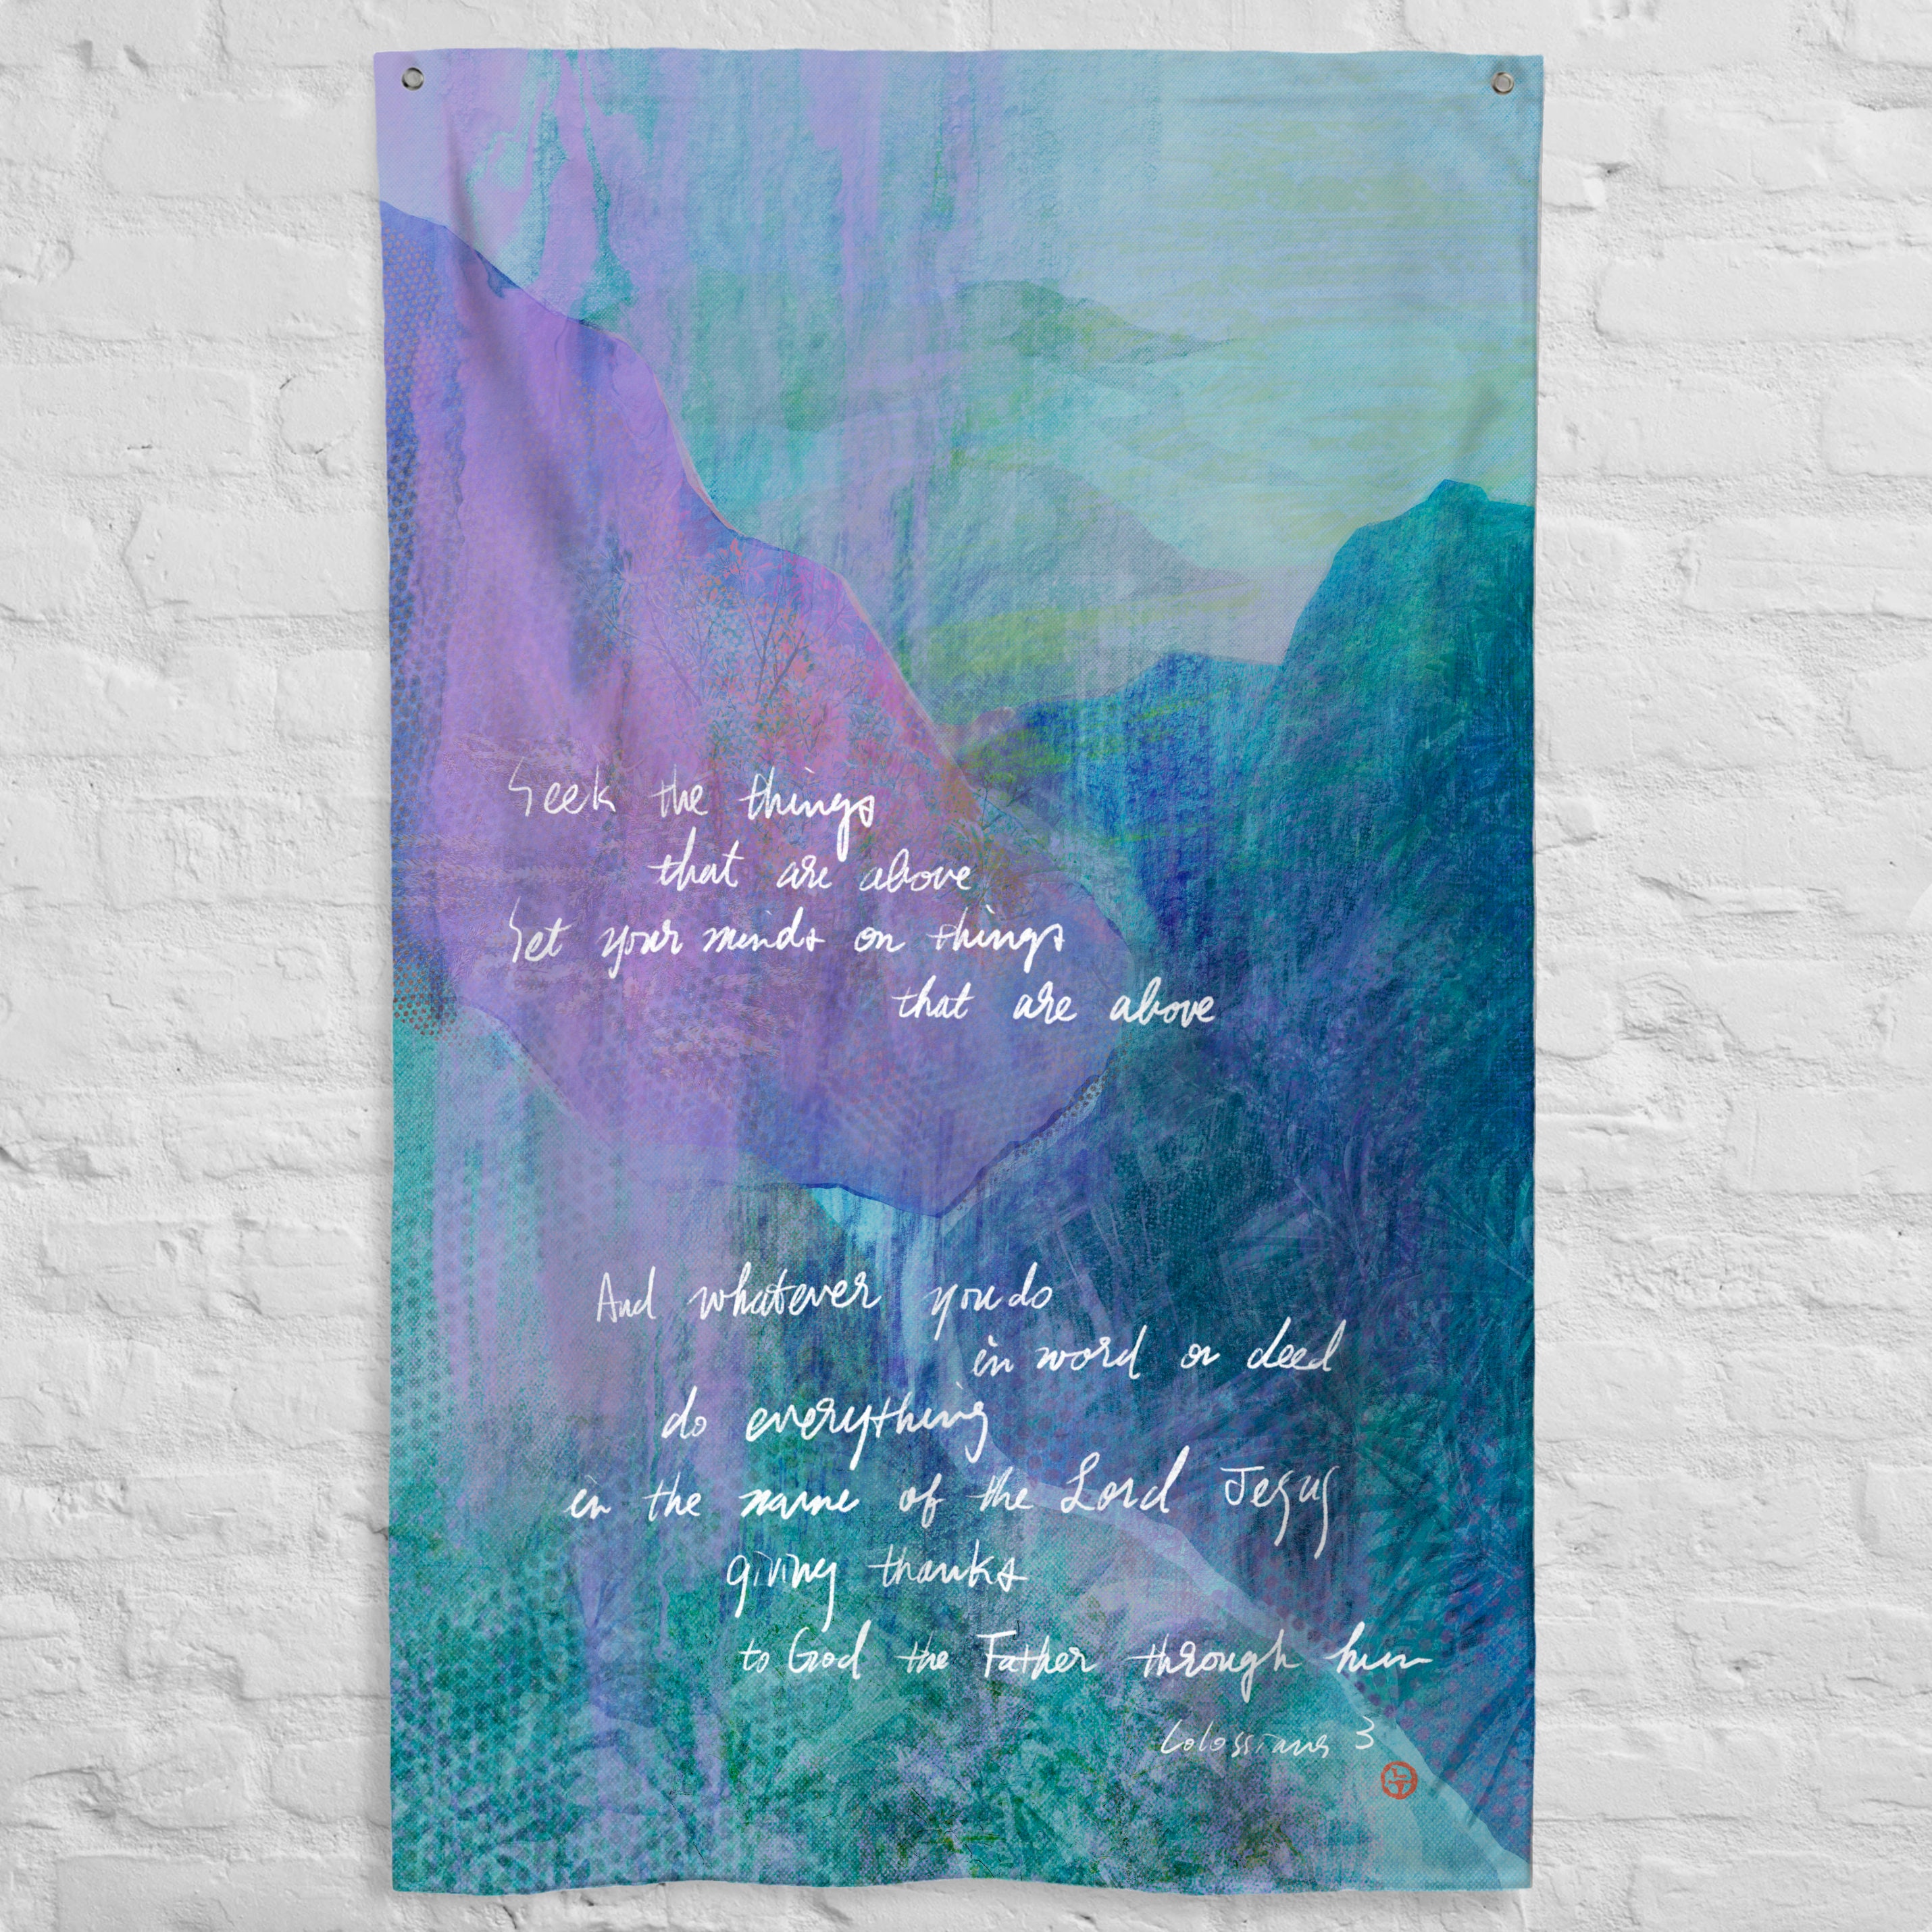 Seek the things
that are above
Set your minds on things
that are above
And whatever you do
in word or deed
do everything
in the name of the Lord Jesus
giving thanks
to God the Father through him
Colossians 3